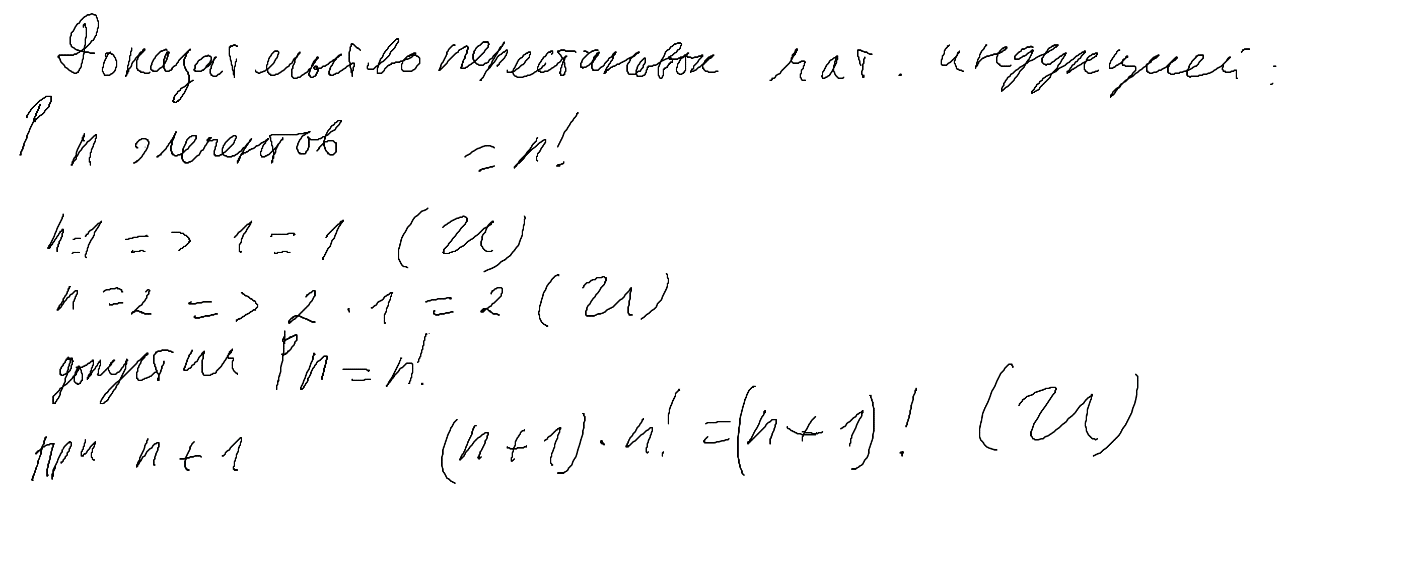 Доказательство перестановок мат. индукцией:
P n элементов = n!
n=1 => 1 = 1 (И)
n = 2 => 2 · 1 = 2 (И)
допустим Pn = n!
при n + 1 (n + 1) · n! = (n + 1)! (И)